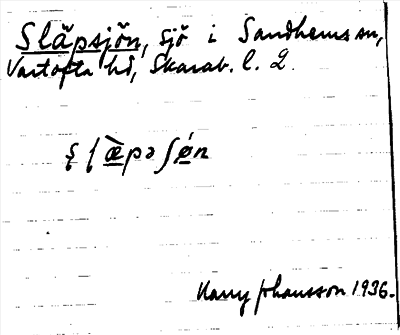 Släpsjön, sjö i Sandhems sn,
Vartofta hd, Skarab. l. 2.
ʂ ſ æ̀pə ʃ ǿn
Harry Johansson 1936.